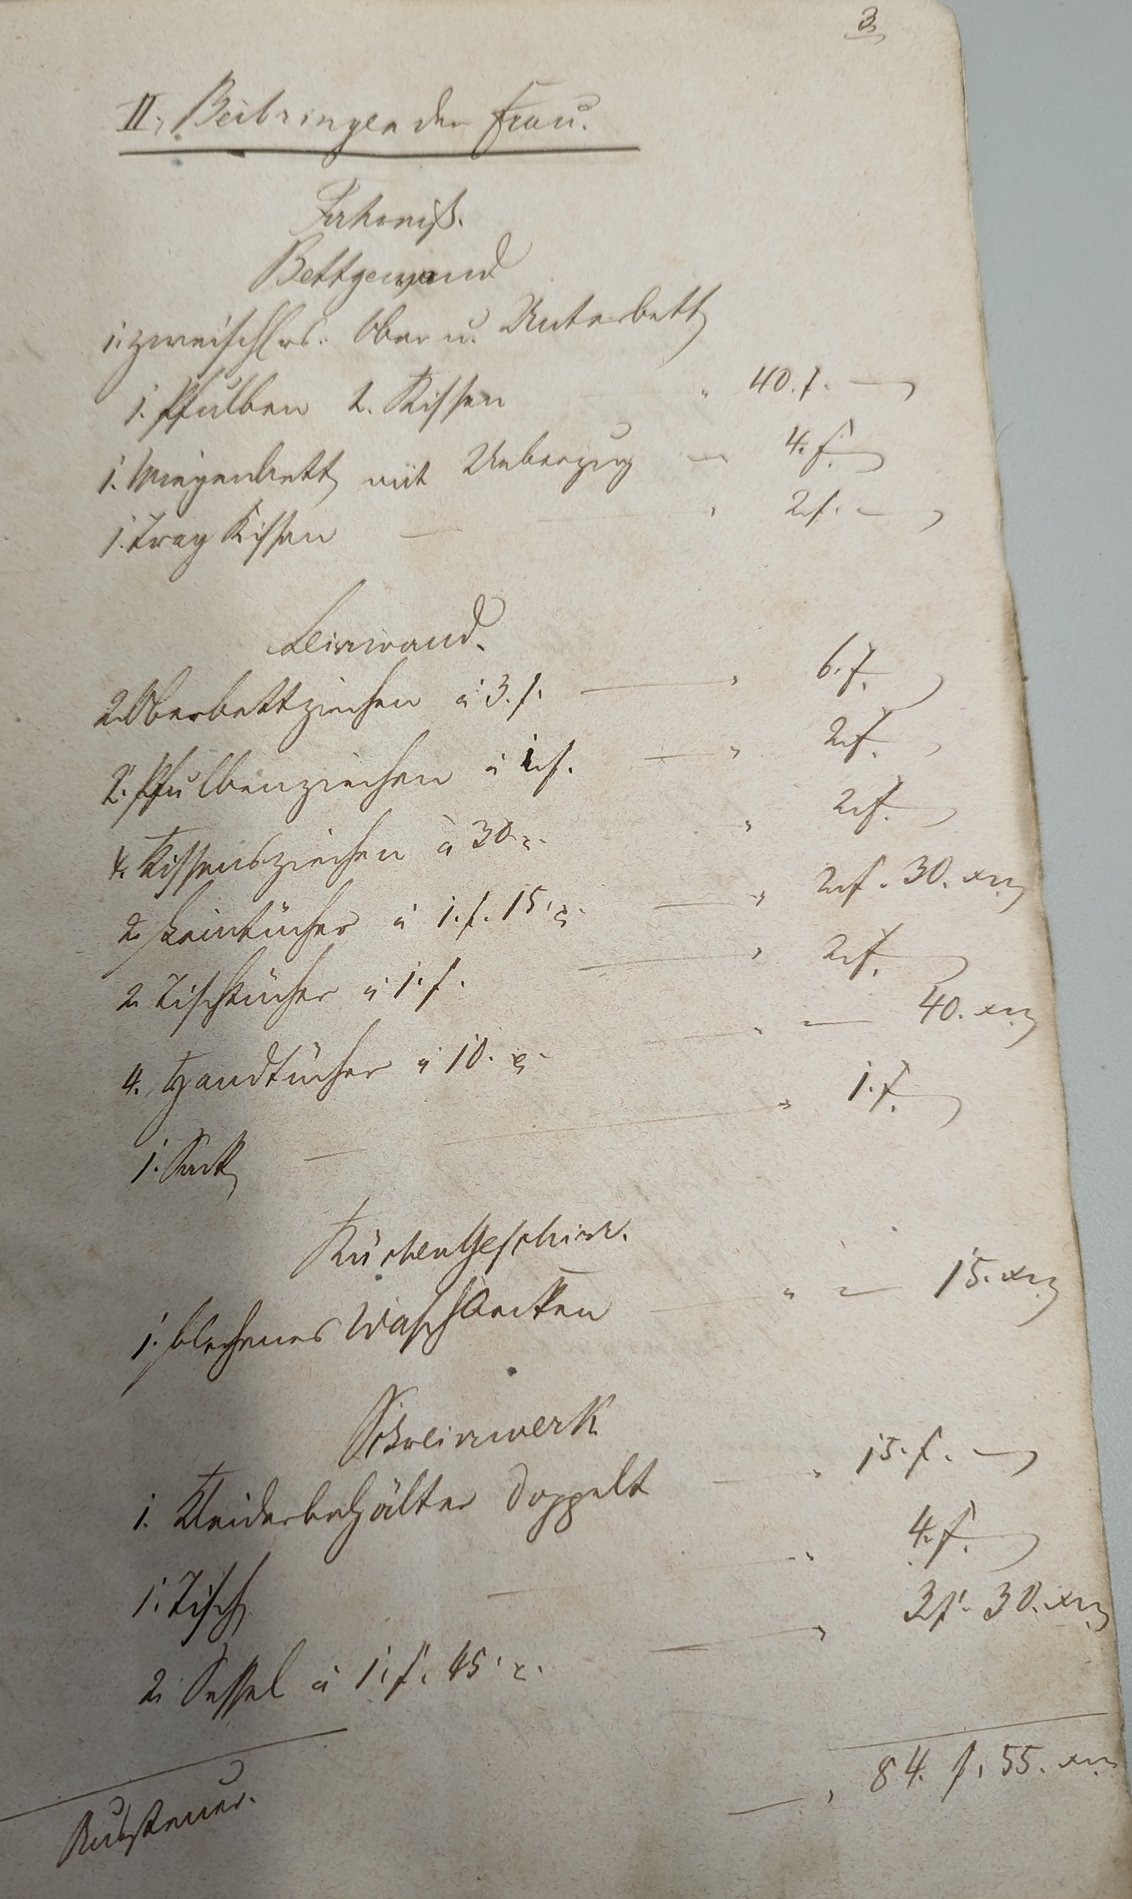 3.
II, Beibringen der Frau.
Fahrniß.
Bettgewand
1. zweischls. Ober u. Unterbett
1. Pfulben 2. Kissen " 40. f. —
1. Wiegenbett mit Ueberzug — 4. f.
1. Trag Kissen — " 2. f. —
Leinwand.
2. Oberbettziechen à 3. f. — " 6. f.
2. Pfulbenziechen à 1. f. — " 2. f.
4. Kissensziechen à 30 x. " 2. f.
2. Leintücher à 1. f. 15. x. — " 2. f. 30. xr.
2. Tischtücher à 1. f. — " 2. f.
4. Handtücher à 10. x. " — 40. xr.
1. Sack — " 1. f.
Küchen Geschirr.
1. blechenes Waschbecken — " — 15. xr.
Schreinwerk
1. Kleiderbehälter doppelt — " 15. f. —
1. Tisch — " 4. f.
2. Sessel à 1. f. 45. x. — " 3 f. 30. xr.
— " 84. f. 55. xr.
Aussteuer.